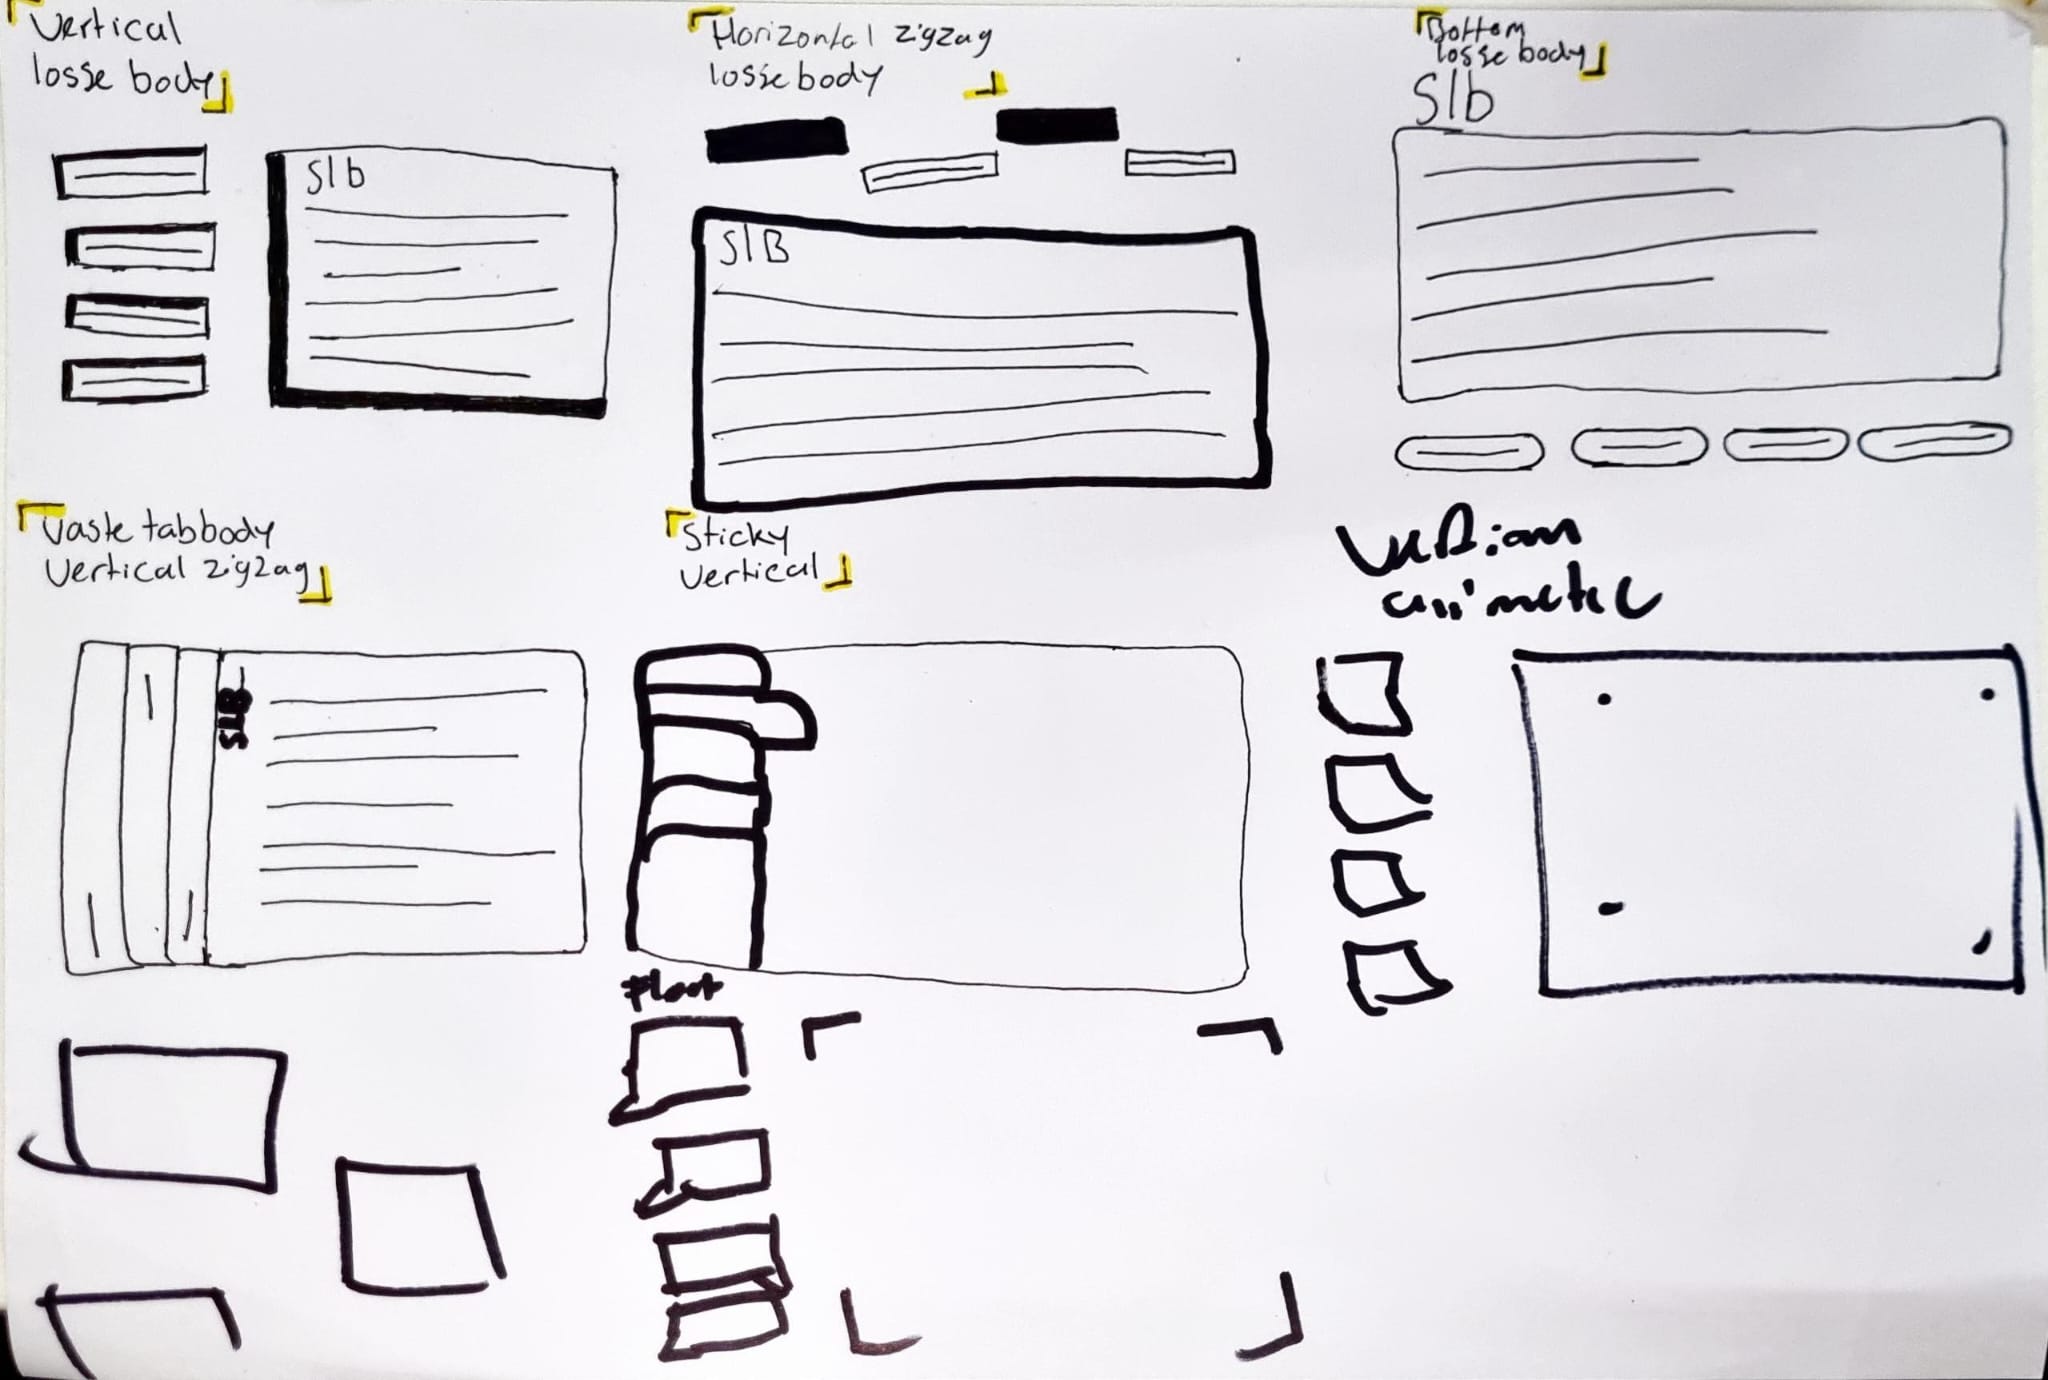 Vertical
losse body
Horizontal zigzag
losse body
Bottom
losse body
Slb
Slb
SlB
Vaste tabbody
Vertical zigzag
Sticky
Vertical
SlB